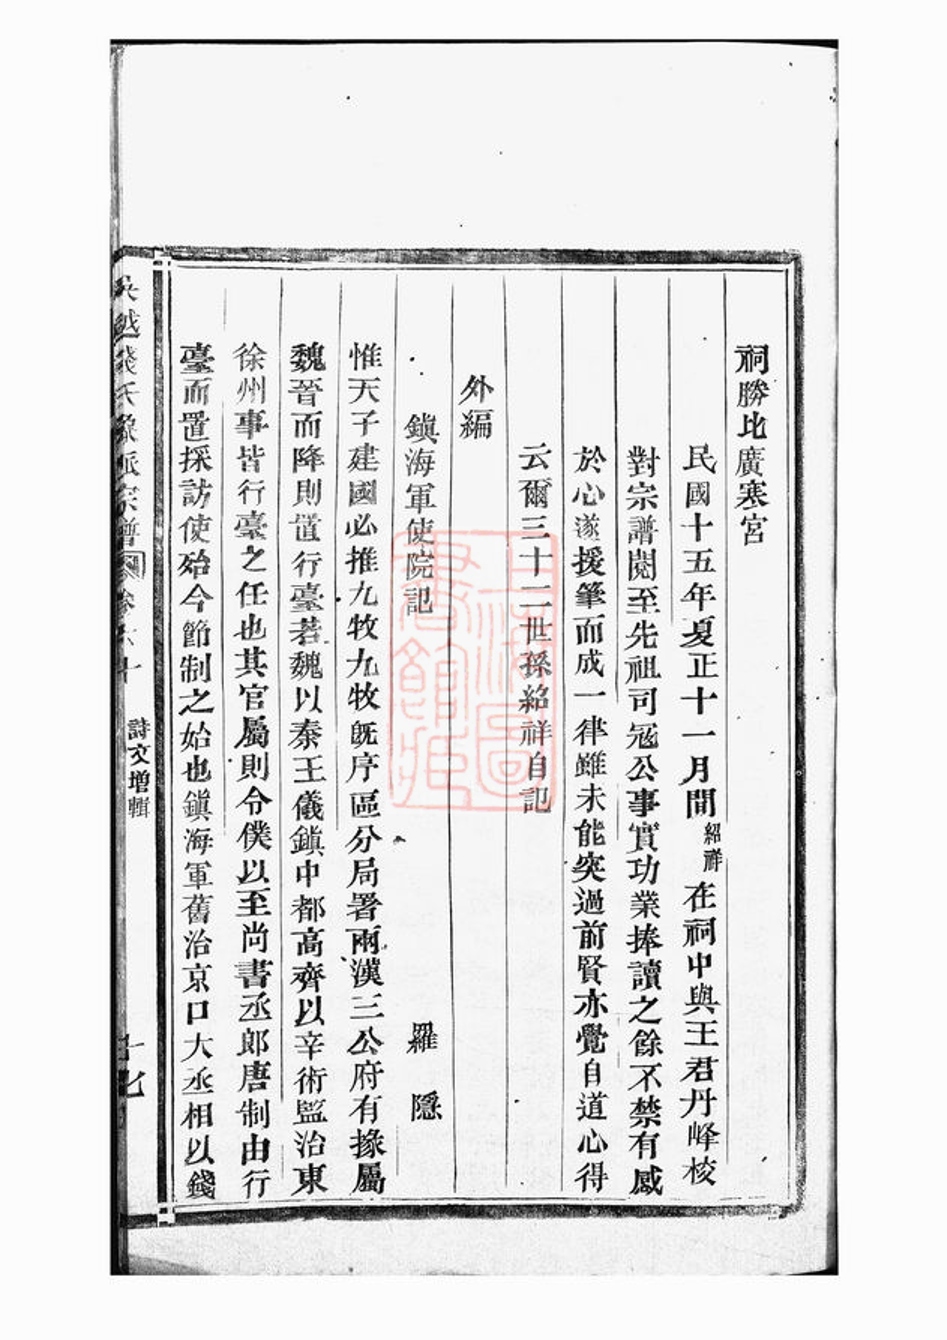 祠勝比廣寒宮
民國十五年夏正十一月間紹祥在祠中與王君丹峰校
對宗譜閱至先祖司冦公事實功業捧讀之餘不禁有感
於心遂援筆而成一律雖未能突過前賢亦覺自道心得
云爾三十二世孫紹祥自記
外編
鎭海軍使院記 羅隱
惟天子建國必推九牧九牧旣序區分局署兩漢三公府有掾屬
魏晉而降則置行臺若魏以秦王儀鎭中都高齊以辛術監治東
徐州事皆行臺之任也其官屬則令僕以至尚書丞郎唐制由行
臺而置採訪使始今節制之始也鎭海軍舊治京口大丞相以錢
吳越錢氏 派宗譜 卷 十 詩文增輯
上海圖書館藏